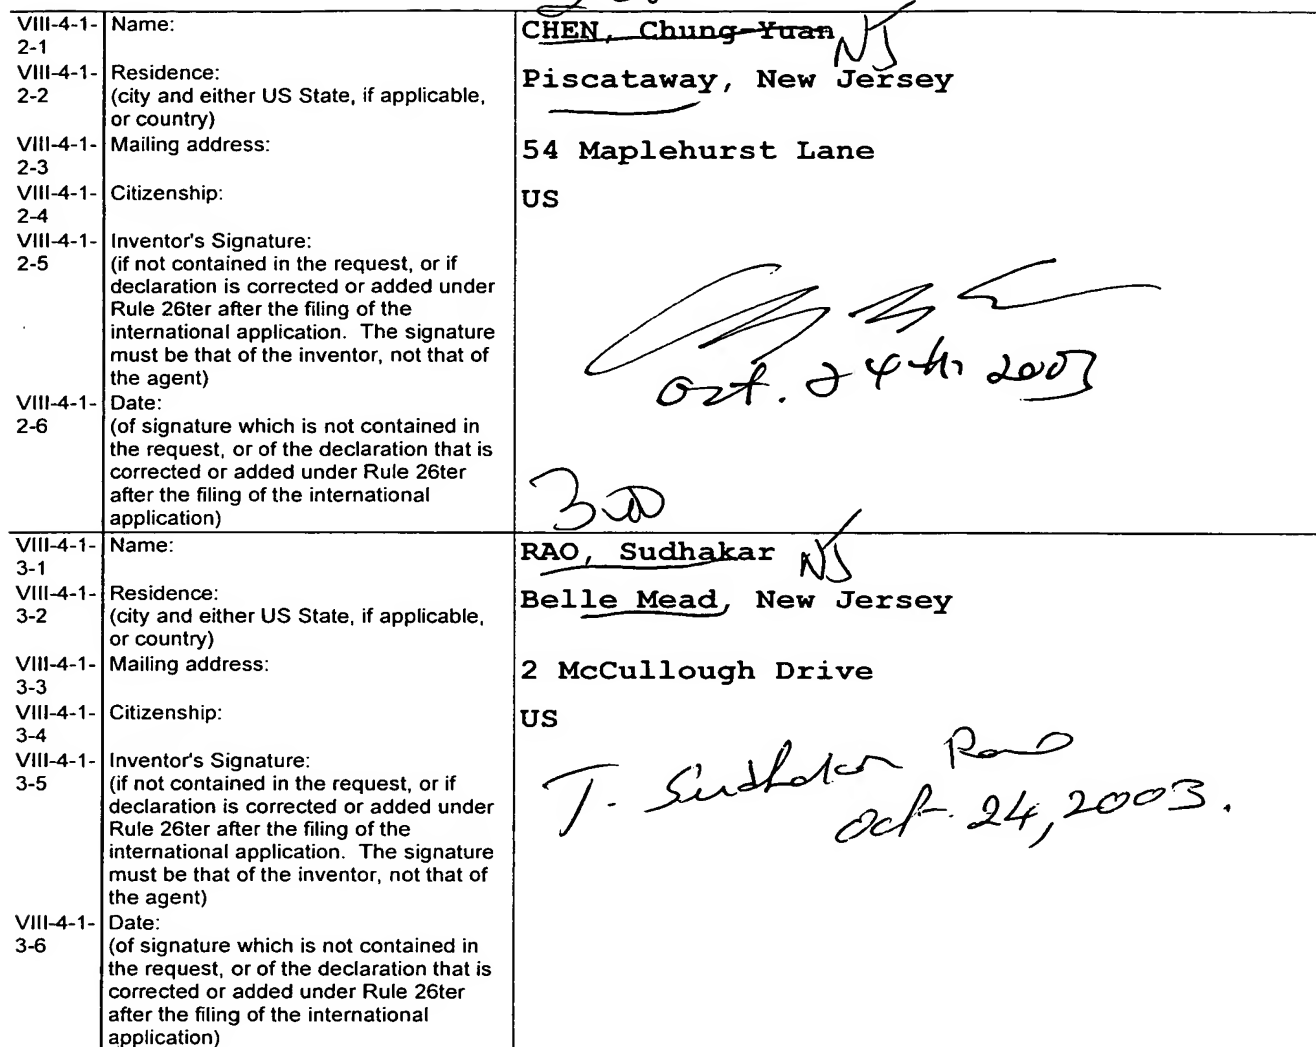 VIII-4-1-2-1 Name: CHEN, Chung-Yuan NJ
VIII-4-1-2-2 Residence: Piscataway, New Jersey
(city and either US State, if applicable,
or country)
VIII-4-1-2-3 Mailing address: 54 Maplehurst Lane
VIII-4-1-2-4 Citizenship: US
VIII-4-1-2-5 Inventor's Signature:
(if not contained in the request, or if
declaration is corrected or added under
Rule 26ter after the filing of the
international application. The signature
must be that of the inventor, not that of
the agent)
Oct. 24th 2003
VIII-4-1-2-6 Date:
(of signature which is not contained in
the request, or of the declaration that is
corrected or added under Rule 26ter
after the filing of the international
application)
VIII-4-1-3-1 Name: RAO, Sudhakar NJ
VIII-4-1-3-2 Residence: Belle Mead, New Jersey
(city and either US State, if applicable,
or country)
VIII-4-1-3-3 Mailing address: 2 McCullough Drive
VIII-4-1-3-4 Citizenship: US
VIII-4-1-3-5 Inventor's Signature: T. Sudhakar Rao
(if not contained in the request, or if
declaration is corrected or added under
Rule 26ter after the filing of the
international application. The signature
must be that of the inventor, not that of
the agent)
Oct. 24, 2003.
VIII-4-1-3-6 Date:
(of signature which is not contained in
the request, or of the declaration that is
corrected or added under Rule 26ter
after the filing of the international
application)